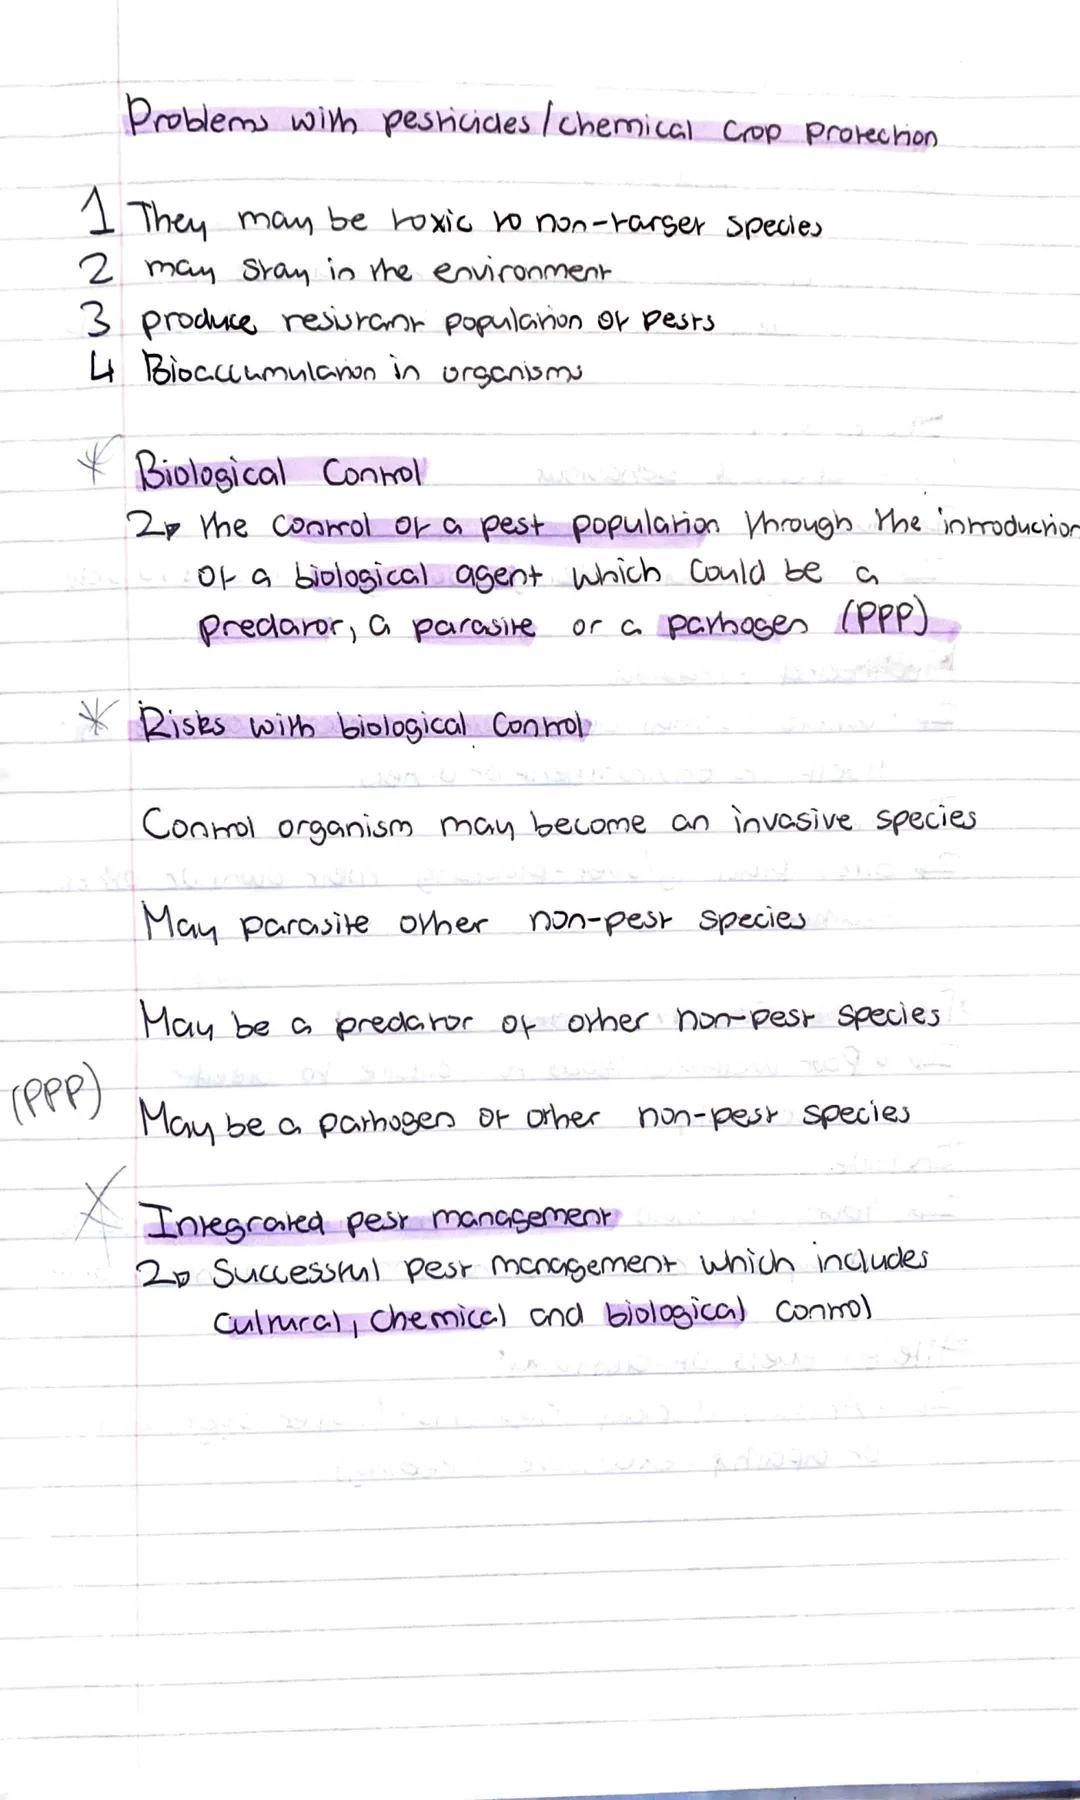 Problems with pesticides/chemical Crop Protection
1 They may be toxic to non-target species
2 may stay in the environment
3 produce resistant population of pests
4 Bioaccumulation in organisms
* Biological Control
2 the control of a pest population through the introduction
of a biological agent which could be a
predator, a parasite or a pathogen (PPP)
* Risks with biological Control
Control organism may become an invasive species
May parasite other non-pest species
May be a predator of other non-pest species
(PPP)
May be a pathogen of other non-pest species
* Integrated pest management
2 Successful Pest management which includes
cultural, chemical and biological control